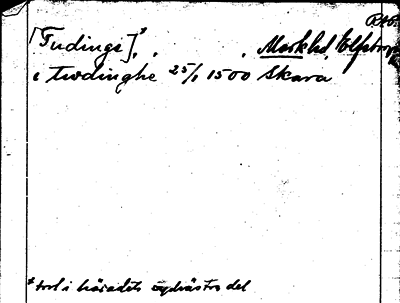 [Tudinge]*, , , Markhd, Elfsborgs
i twdinghe 25/1 1500 Skara
* trol. i häradets sydvästra del